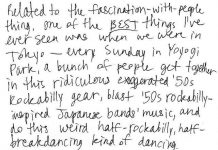 Related to the fascination-with-people
thing, one of the BEST things I've
ever seen was when we were in
Tokyo — every Sunday in Yoyogi
Park, a bunch of people get together
in this ridiculous exaggerated '50s
Rockabilly gear, blast '50s rockabilly-
inspired Japanese bands' music, and
do this weird half-rockabilly, half-
breakdancing kind of dancing.